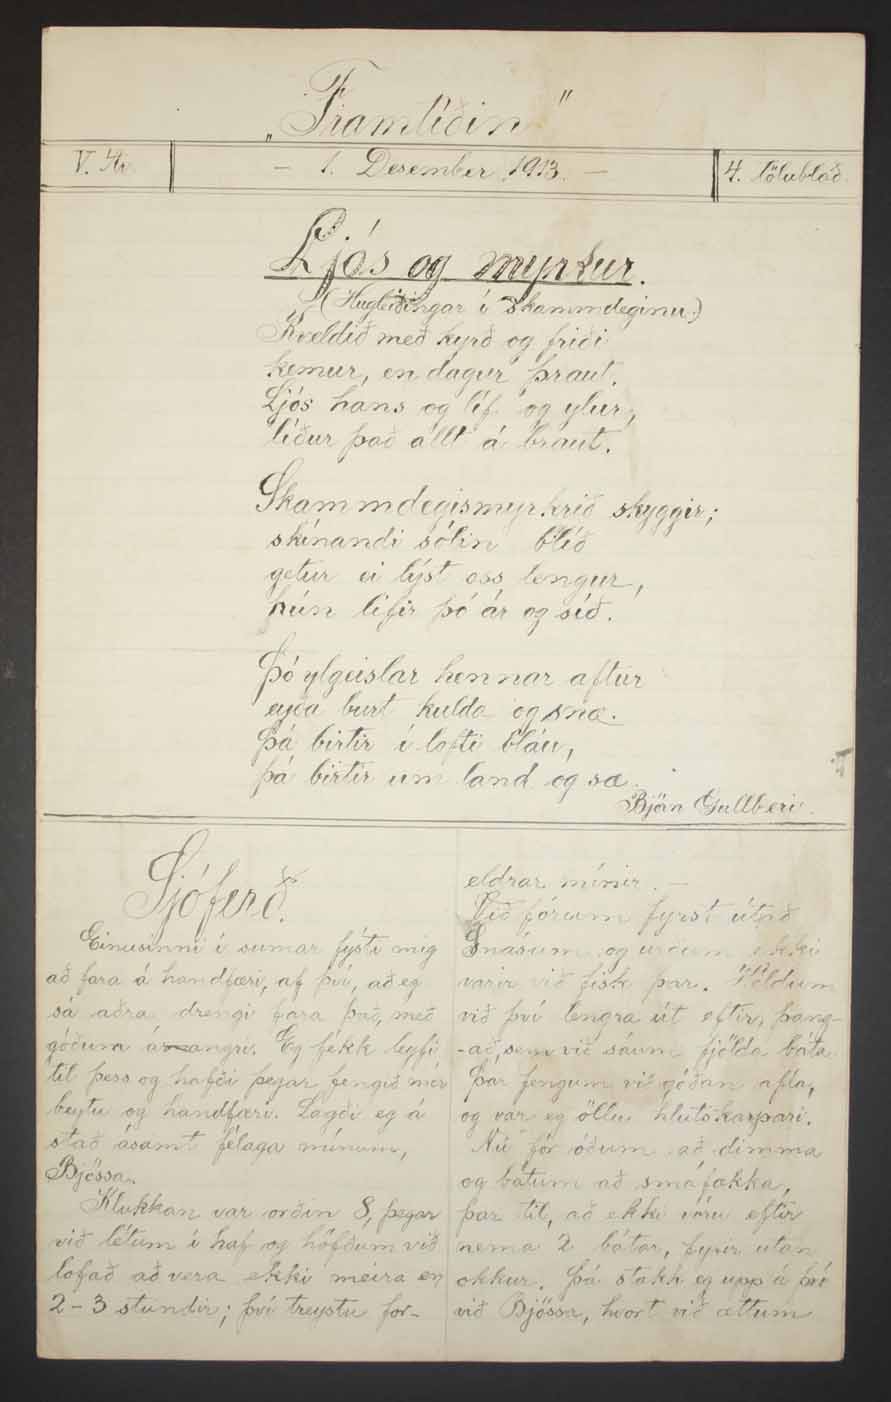 „Framtíðin"
V. Ár.
- 1. Desember 1913. -
4. tölublað.
Ljós og myrkur.
(Hugleiðingar í skammdeginu.)
Kveldið með kyrð og friði
kemur, en dagur þraut.
Ljós hans og líf og ylur,
líður það allt á braut.
Skammdegismyrkrið skyggir;
skínandi sólin blíð
getur ei lýst oss lengur,
hún lifir þó ár og síð.
Þó ylgeislar hennar aftur
eyða burt kulda og snæ.
Þá birtir í lofti bláu,
þá birtir um land og sæ.
Björn Gullberi.
Sjóferð.
Einusinni í sumar fýsti mig
að fara á handfæri, af því, að eg
sá aðra drengi fara það, með
góðum árangri. Eg fékk leyfi
til þess og hafði þegar fengið mér
beytu og handfæri. Lagði eg á
stað ásamt félaga mínum,
Bjössa.
Klukkan var orðin 8, þegar
við létum í haf og höfðum við
lofað að vera ekki meira en
2-3 stundir; því treystu for-
eldrar mínir. -
Við fórum fyrst útað
Snásum og urðum ekki
varir við fisk þar. Héldum
við því lengra út eftir, þang-
-að, sem við sáum fjölda báta.
Þar fengum við góðan afla,
og var eg öllu hlutskarpari.
Nú fór óðum að dimma
og bátum að smáfækka,
þar til, að ekki vóru eftir
nema 2 bátar, fyrir utan
okkur. Þá stakk eg upp á því
við Bjössa, hvort við ættum